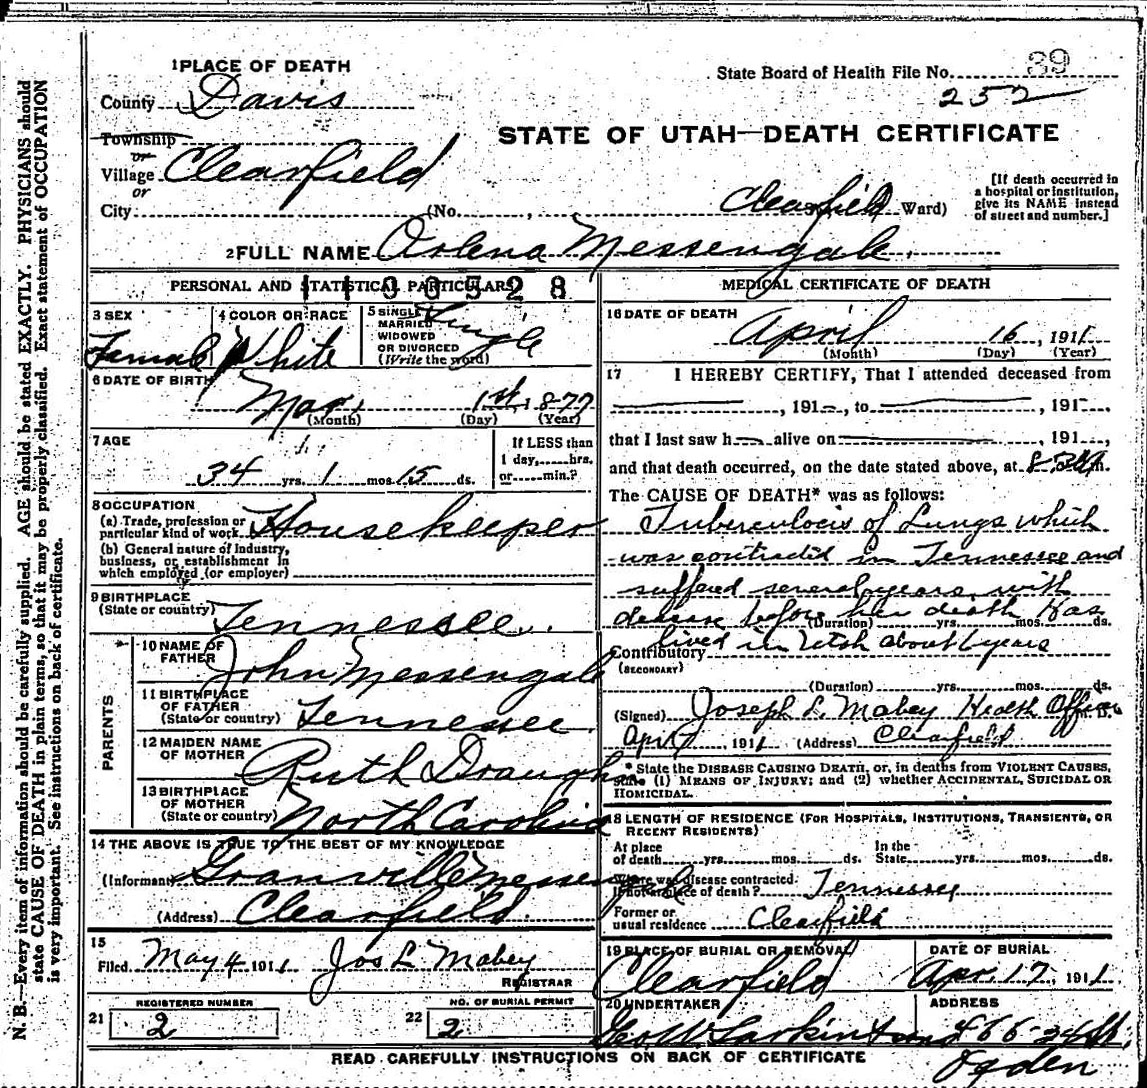 1 PLACE OF DEATH
State Board of Health File No. 39
252
County Davis
STATE OF UTAH—DEATH CERTIFICATE
Township
or
Village Clearfield
or
City (No. , Clearfield Ward)
[If death occurred in a hospital or institution, give its NAME instead of street and number.]
2 FULL NAME Arlena Messengale.
PERSONAL AND STATISTICAL PARTICULARS
1100528
3 SEX Female
4 COLOR OR RACE White
5 SINGLE MARRIED WIDOWED OR DIVORCED (Write the word) Single
6 DATE OF BIRTH Mar. 1st, 1877
(Month) (Day) (Year)
7 AGE
34 yrs. 1 mos. 15 ds.
If LESS than 1 day, hrs. or min.?
8 OCCUPATION
(a) Trade, profession or particular kind of work Housekeeper
(b) General nature of industry, business, or establishment in which employed (or employer)
9 BIRTHPLACE (State or country) Tennessee.
PARENTS
10 NAME OF FATHER John Messengale
11 BIRTHPLACE OF FATHER (State or country) Tennessee
12 MAIDEN NAME OF MOTHER Ruth Draugh
13 BIRTHPLACE OF MOTHER (State or country) North Carolina
14 THE ABOVE IS TRUE TO THE BEST OF MY KNOWLEDGE
(Informant) Granville Messengale
(Address) Clearfield.
15
Filed May 4 1911 Jos L Mabey
REGISTRAR
REGISTERED NUMBER
21 2
NO. OF BURIAL PERMIT
22 2
MEDICAL CERTIFICATE OF DEATH
16 DATE OF DEATH
April 16, 1911
(Month) (Day) (Year)
17 I HEREBY CERTIFY, That I attended deceased from
, 191 , to , 191 ,
that I last saw h alive on , 191 ,
and that death occurred, on the date stated above, at m.
The CAUSE OF DEATH* was as follows:
Tuberculocis of Lungs which
was contracted in Tennessee and
suffered several years with
desease before her death Has
(Duration) yrs. mos. ds.
lived in Utah about years
Contributory
(SECONDARY)
(Duration) yrs. mos. ds.
(Signed) Joseph L. Mabey Health Officer M. D.
Apr 1911 (Address) Clearfield
* State the DISEASE CAUSING DEATH, or, in deaths from VIOLENT CAUSES,
state (1) MEANS OF INJURY; and (2) whether ACCIDENTAL, SUICIDAL OR
HOMICIDAL.
18 LENGTH OF RESIDENCE (FOR HOSPITALS, INSTITUTIONS, TRANSIENTS, OR
RECENT RESIDENTS)
At place of death yrs. mos. ds. In the State yrs. mos. ds.
Where was disease contracted.
If not at place of death? Tennessey
Former or usual residence Clearfield
19 PLACE OF BURIAL OR REMOVAL Clearfield
DATE OF BURIAL Apr. 17, 1911
20 UNDERTAKER Geo W Larkin & sons
ADDRESS 466-24 St.
Ogden
READ CAREFULLY INSTRUCTIONS ON BACK OF CERTIFICATE
N. B. Every item of information should be carefully supplied. AGE should be stated EXACTLY. PHYSICIANS should
state CAUSE OF DEATH in plain terms, so that it may be properly classified. Exact statement of OCCUPATION
is very important. See instructions on back of certificate.